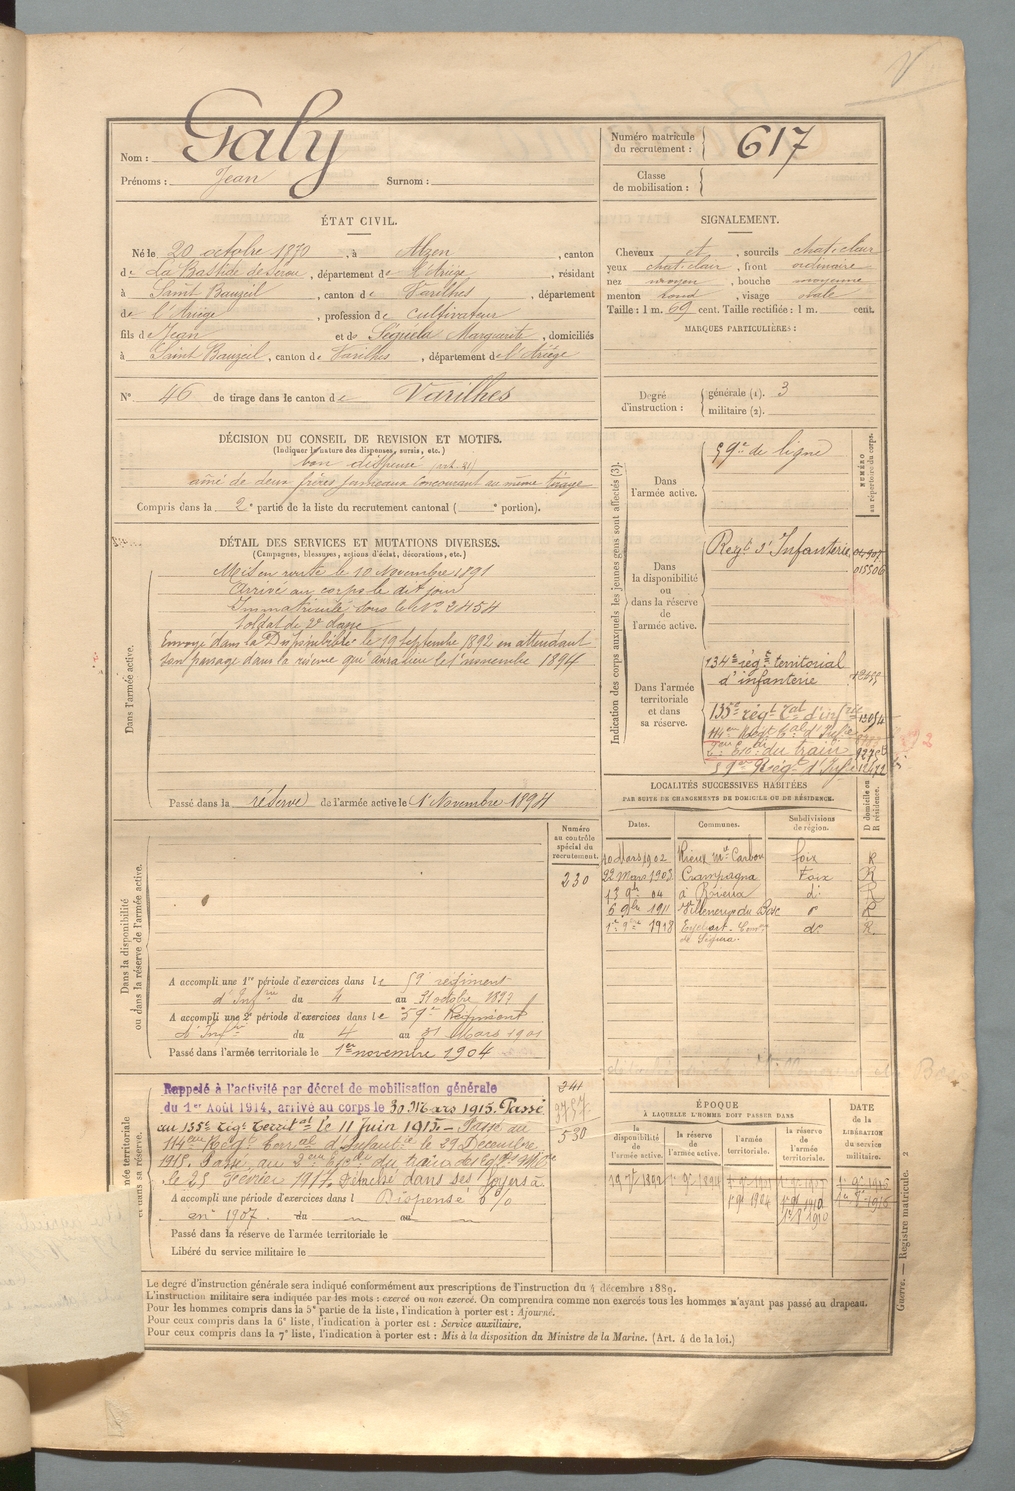 Nom : Galy
Prénoms : Jean Surnom :
Numéro matricule du recrutement : 617
Classe de mobilisation :
ÉTAT CIVIL.
Né le 20 octobre 1870, à Alzen, canton
de La Bastide de Serou, département de l'Ariège, résidant
à Saint Bauzeil, canton de Varilhes, département
de l'Ariège, profession de cultivateur
fils de Jean et de Séguéla Marguerite, domiciliés
à Saint Bauzeil, canton de Varilhes, département de l'Ariège
N° 46 de tirage dans le canton de Varilhes
SIGNALEMENT.
Cheveux et, sourcils chat-clair
yeux chat-clair, front ordinaire
nez moyen, bouche moyenne
menton rond, visage ovale
Taille : 1 m. 69 cent. Taille rectifiée : 1 m. cent.
MARQUES PARTICULIÈRES :
Degré d'instruction : générale (1). 3
militaire (2).
DÉCISION DU CONSEIL DE REVISION ET MOTIFS.
(Indiquer la nature des dispenses, sursis, etc.)
bon dispensé (art. 21)
aîné de deux frères jumeaux concourant au même tirage
Compris dans la 2e partie de la liste du recrutement cantonal ( e portion).
DÉTAIL DES SERVICES ET MUTATIONS DIVERSES.
(Campagnes, blessures, actions d'éclat, décorations, etc.)
Dans l'armée active.
Mis en route le 10 Novembre 1891
Arrivé au corps le dit jour
Immatriculé sous le No 2454
Soldat de 2e classe
Envoyé dans la Disponibilité le 19 septembre 1892 en attendant
son passage dans la réserve qui aura lieu le 1er novembre 1894
Passé dans la réserve de l'armée active le 1er Novembre 1894
Indication des corps auxquels les jeunes gens sont affectés (3).
NUMÉRO au répertoire du corps.
Dans l'armée active.
59e de ligne
Dans la disponibilité ou dans la réserve de l'armée active.
Regt d'Infanterie
015506
Dans l'armée territoriale et dans sa réserve.
134e régt territorial
d'infanterie
135e régt Tal d'infrie 13054
114eme Regt Tal d'Infie
du train
59e Régt d'Infie
LOCALITÉS SUCCESSIVES HABITÉES
PAR SUITE DE CHANGEMENTS DE DOMICILE OU DE RÉSIDENCE.
Dates. Communes. Subdivisions de région. D domicile ou R résidence.
10 Mars 1902 Rieux Foix R
22 Mars 1903 Crampagna Foix R
13 9bre 04 à Rieux d° R
6 1911 Villeneuve du Bosc R
1918 R.
Dans la disponibilité ou dans la réserve de l'armée active.
Numéro au contrôle spécial du recrutement.
230
A accompli une 1re période d'exercices dans le 59 régiment
d'Infrie du 4 au 31 octobre
A accompli une 2e période d'exercices dans le 59e Régiment
d'Infie du 4 au 31 Mars 1901
Passé dans l'armée territoriale le 1er novembre 1904
Rappelé à l'activité par décret de mobilisation générale
du 1er Août 1914, arrivé au corps le 30 Mars 1915. Passé
au 135e régt territal le 11 Juin 1915. — Passé au
114eme Regt d'Infantie le 29 Décembre
1915. Passé au du train
le 25 Février 1917. Détaché dans ses foyers à
A accompli une période d'exercices dans l Dispensé
en 1907. du — au —
Passé dans la réserve de l'armée territoriale le
Libéré du service militaire le
530
ÉPOQUE
À LAQUELLE L'HOMME DOIT PASSER DANS
la disponibilité de l'armée active. la réserve de l'armée active. l'armée territoriale. la réserve de l'armée territoriale.
DATE de la LIBÉRATION du service militaire.
Guerre. — Registre matricule. 2
Le degré d'instruction générale sera indiqué conformément aux prescriptions de l'instruction du 4 décembre 1889.
L'instruction militaire sera indiquée par les mots : exercé ou non exercé. On comprendra comme non exercés tous les hommes n'ayant pas passé au drapeau.
Pour les hommes compris dans la 5e partie de la liste, l'indication à porter est : Ajourné.
Pour ceux compris dans la 6e liste, l'indication à porter est : Service auxiliaire.
Pour ceux compris dans la 7e liste, l'indication à porter est : Mis à la disposition du Ministre de la Marine. (Art. 4 de la loi.)